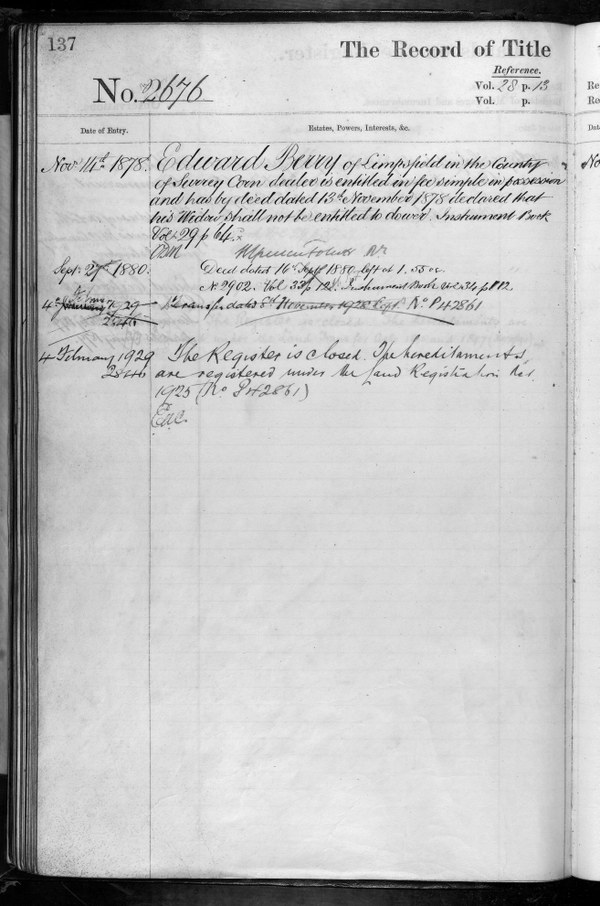 137
The Record of Title
Reference.
No. 2676
Vol. 28 p. 13
Vol. p.
Date of Entry.
Estates, Powers, Interests, &c.
Nov 14th 1878. Edward Berry of Limpsfield in the County
of Surrey Corn dealer is entitled in fee simple in possession
and has by deed dated 13th November 1878 declared that
his Widow shall not be entitled to dower. Instrument Book
Vol 29 p 64.
Sept. 27th 1880. Deed dated 16 Sept 1880 left at 1.55 oc.
No 2902. Vol 33 p 128. Instrument Book Vol 34 p 112
4 29 Transfer dated 8th November 1928 Dept. No P42861
4 February 1929 The Register is closed. The hereditaments
are registered under the Land Registration Act
1925 (No P42861)